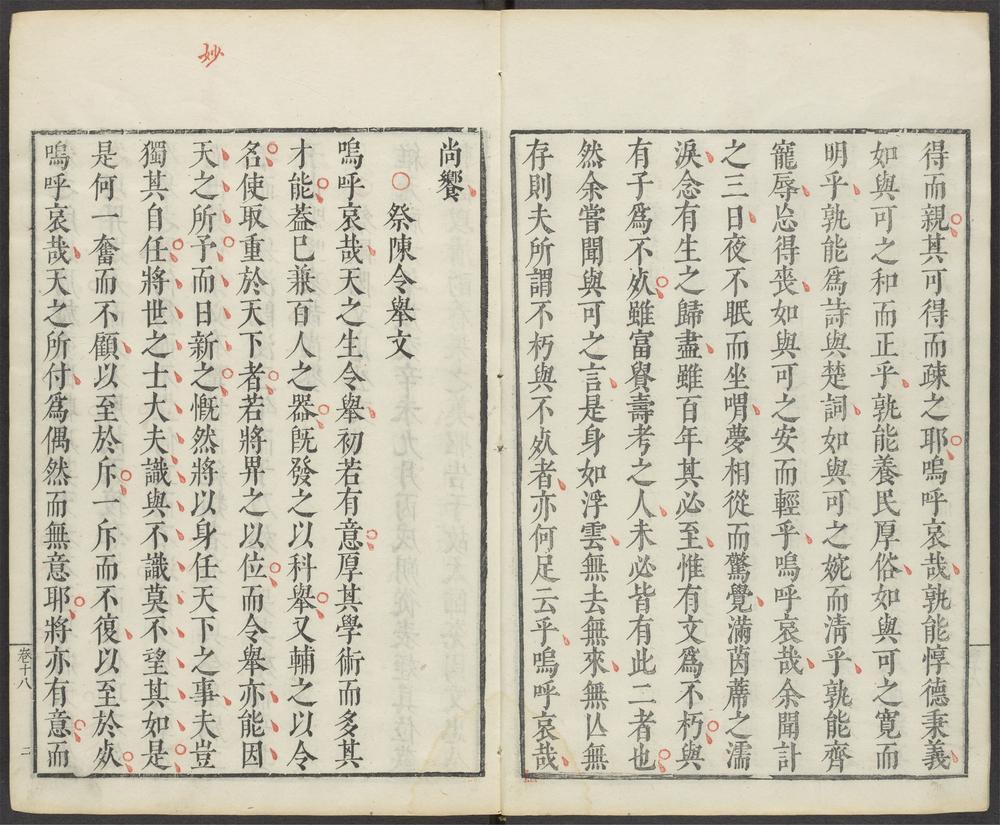 得而親其可得而疎之耶嗚呼哀哉孰能惇德秉義
如與可之和而正乎孰能養民厚俗如與可之寬而
明乎孰能爲詩與楚詞如與可之婉而淸乎孰能齊
寵辱忘得喪如與可之安而輕乎嗚呼哀哉余聞訃
之三日夜不眠而坐喟夢相從而驚覺滿茵蓆之濡
淚念有生之歸盡雖百年其必至惟有文爲不朽與
有子爲不死雖富貴壽考之人未必皆有此二者也
然余嘗聞與可之言是身如浮雲無去無來無亾無
存則夫所謂不朽與不死者亦何足云乎嗚呼哀哉
尚饗
祭陳令舉文
嗚呼哀哉天之生令舉初若有意厚其學術而多其
才能葢已兼百人之器旣發之以科舉又輔之以令
名使取重於天下者若將畀之以位而令舉亦能因
天之所予而日新之慨然將以身任天下之事夫豈
獨其自任將世之士大夫識與不識莫不望其如是
是何一奮而不顧以至於斥一斥而不復以至於死
嗚呼哀哉天之所付爲偶然而無意耶將亦有意而
卷十八
二
妙